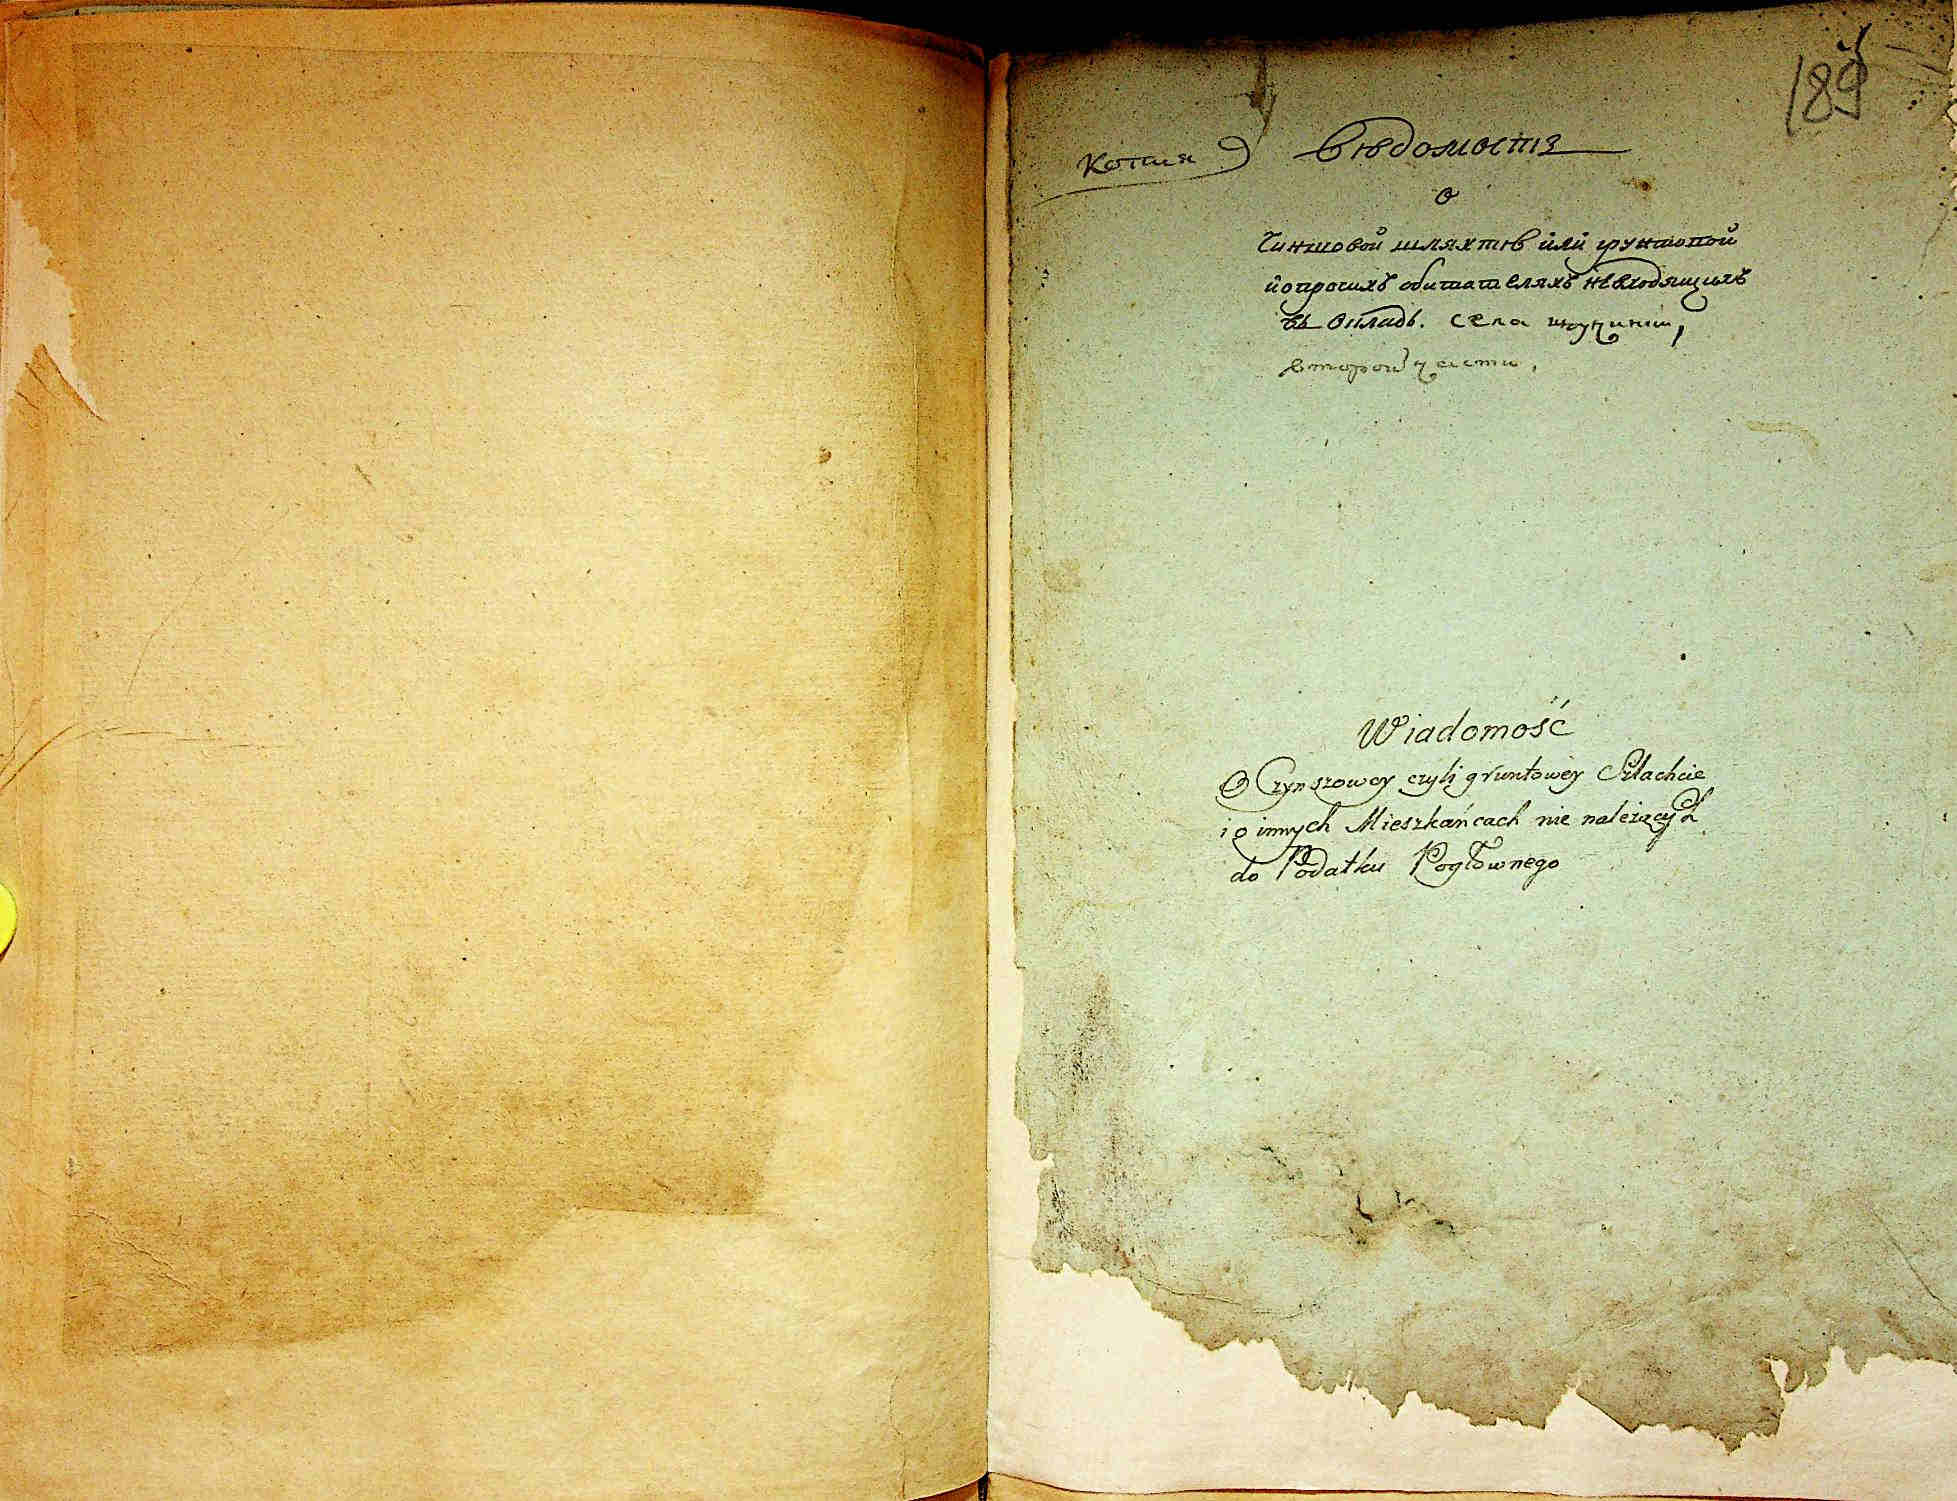 189
Копия
Вѣдомость
о
Чиншовой шляхтѣ или грунтовой
и опрочихъ обитателяхъ невходящихъ
въ окладъ. села
второй части,
Wiadomość
O Czynszowey czyli gruntowey Szlachcie
i o innych Mieszkańcach nie należących
do Podatku Pogłównego